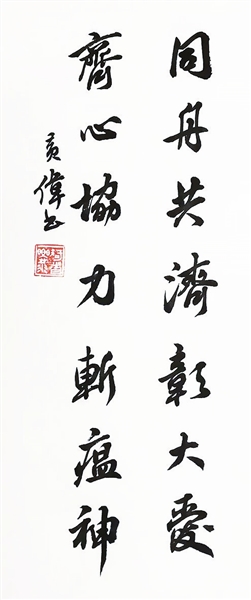 同舟共濟彰大愛
齊心協力斬瘟神
黃偉书